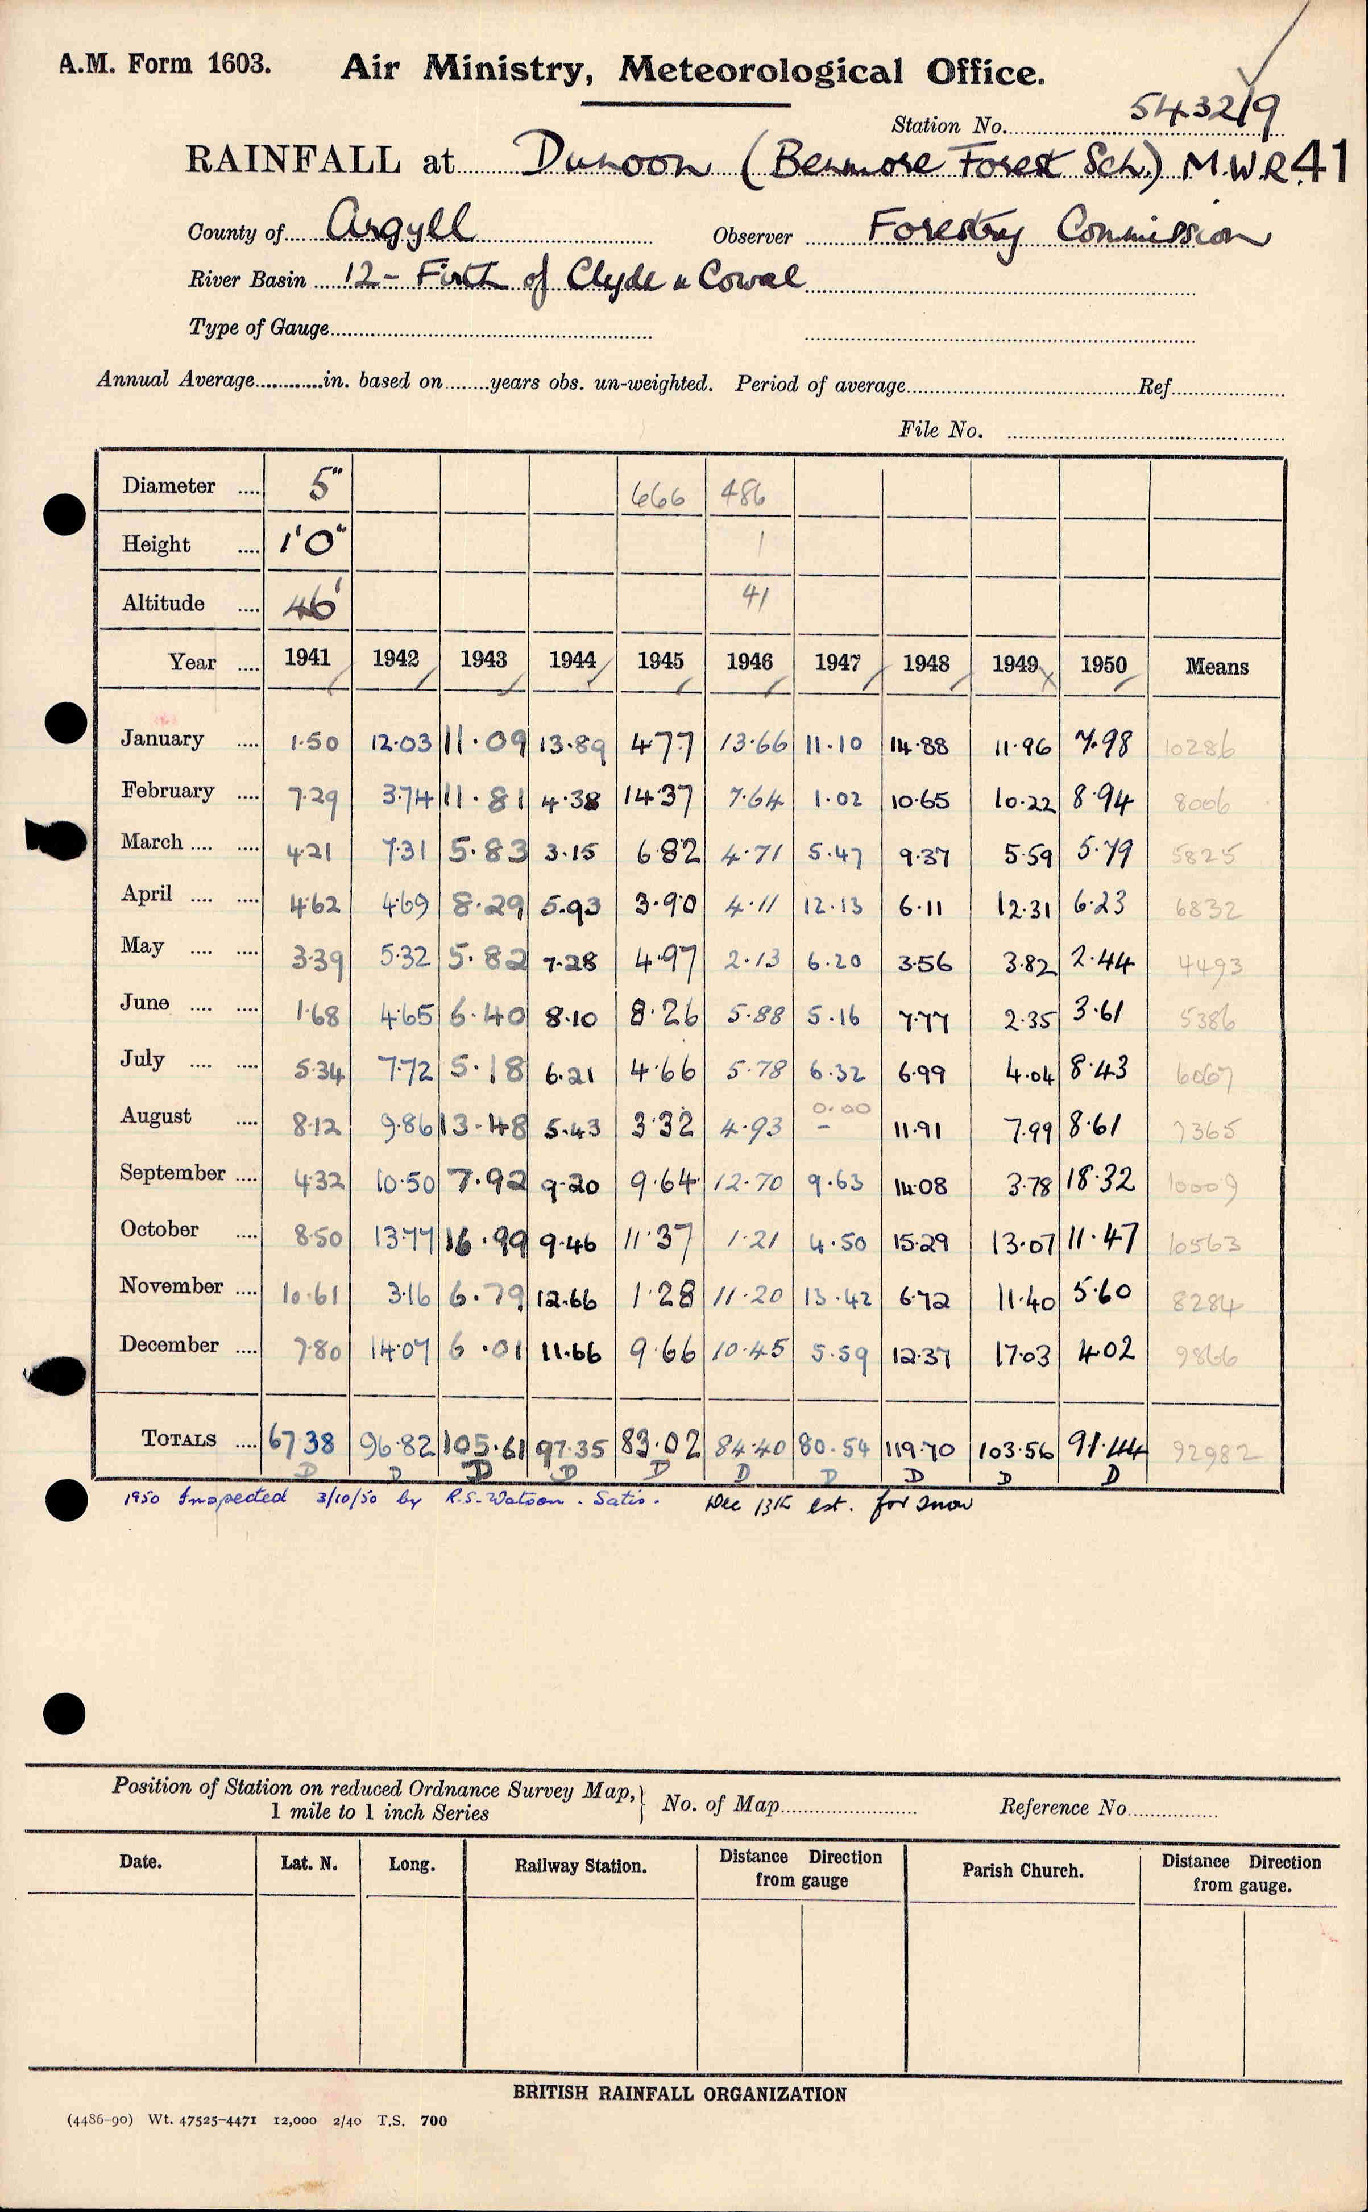 A.M. Form 1603. Air Ministry, Meteorological Office.
Station No. 543219
RAINFALL at Dunoon (Benmore Forest Sch.) M.W.R. 41
County of Argyll Observer Forestry Commission
River Basin 12 - Firth of Clyde & Cowal
Type of Gauge
Annual Average in. based on years obs. un-weighted. Period of average Ref.
File No.
Diameter .... 5" 666 486
Height .... 1'0" 1
Altitude .... 46' 41
Year .... 1941 1942 1943 1944 1945 1946 1947 1948 1949 1950 Means
January .... 1.50 12.03 11.09 13.89 4.77 13.66 11.10 14.88 11.96 7.98 10286
February .... 7.29 3.74 11.81 4.38 14.37 7.64 1.02 10.65 10.22 8.94 8006
March .... .... 4.21 7.31 5.83 3.15 6.82 4.71 5.47 9.37 5.59 5.79 5825
April .... .... 4.62 4.69 8.29 5.93 3.90 4.11 12.13 6.11 12.31 6.23 6832
May .... .... 3.39 5.32 5.82 7.28 4.97 2.13 6.20 3.56 3.82 2.44 4493
June .... .... 1.68 4.65 6.40 8.10 8.26 5.88 5.16 7.77 2.35 3.61 5386
July .... .... 5.34 7.72 5.18 6.21 4.66 5.78 6.32 6.99 4.04 8.43 6067
August .... 8.12 9.86 13.48 5.43 3.32 4.93 0.00 - 11.91 7.99 8.61 7365
September .... 4.32 10.50 7.92 9.20 9.64 12.70 9.63 14.08 3.78 18.32 10009
October .... 8.50 13.77 16.99 9.46 11.37 1.21 4.50 15.29 13.07 11.47 10563
November .... 10.61 3.16 6.79 12.66 1.28 11.20 13.42 6.72 11.40 5.60 8284
December .... 7.80 14.07 6.01 11.66 9.66 10.45 5.59 12.37 17.03 4.02 9866
TOTALS .... 67.38 96.82 105.61 97.35 83.02 84.40 80.54 119.70 103.56 91.44 92982
D D D D D D D D D D
1950 Inspected 3/10/50 by R.S. Watson. Satis. Dec 13th est. for snow
Position of Station on reduced Ordnance Survey Map,
1 mile to 1 inch Series
No. of Map Reference No.
Date. Lat. N. Long. Railway Station. Distance Direction from gauge Parish Church. Distance Direction from gauge.
BRITISH RAINFALL ORGANIZATION
(4486-90) Wt. 47525-4471 12,000 2/40 T.S. 700